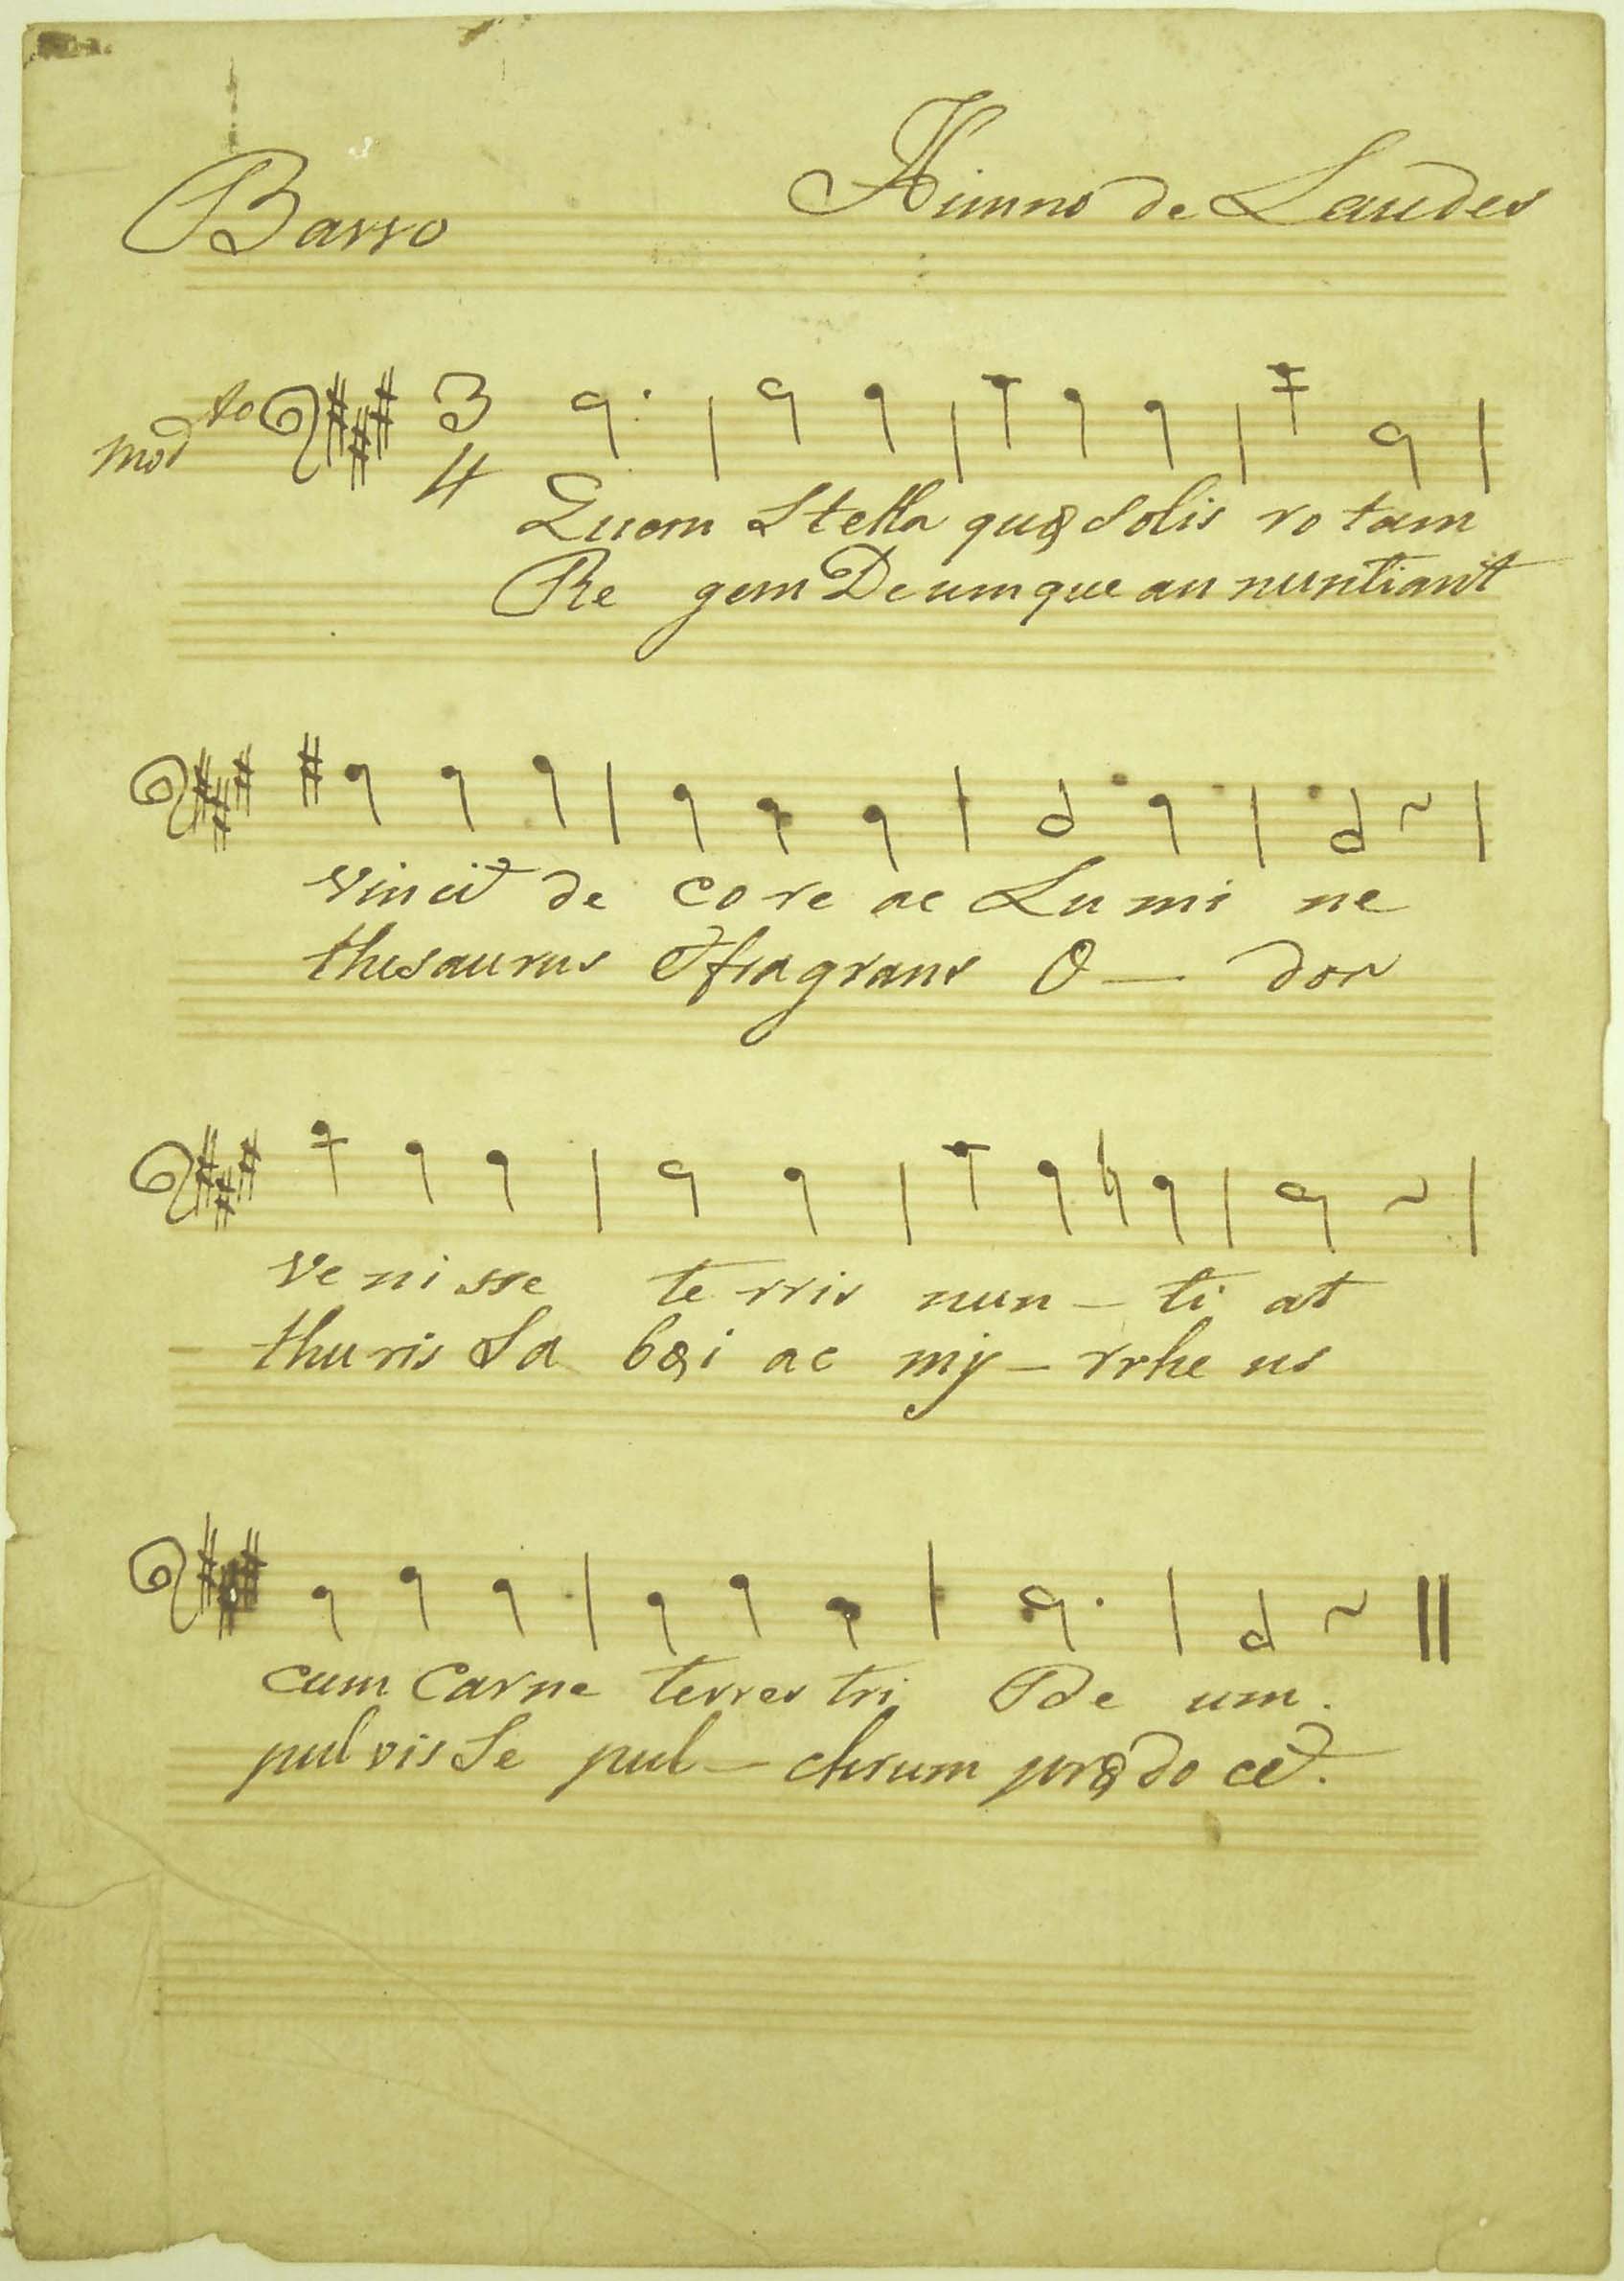 Barro Himno de Laudes
Mod.to 3 4
Quem Stella quæ Solis ro tam
Re gem Deumque an nuntiant
vincit de co re ac Lu mi ne
thesaurus & fragrans O — dor
Ve ni sse te rris nun – ti at
thu ris Sa bæi ac my – rrhe us
cum Carne terres tri De um.
pul vis Se pul – chrum præ do cet.